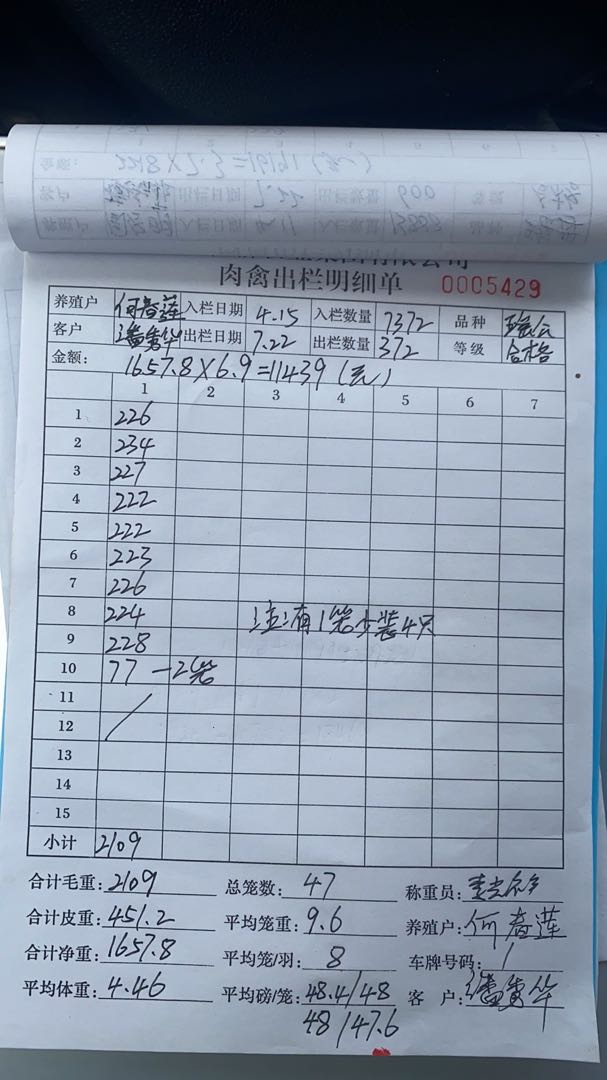 肉禽出栏明细单 0005429
养殖户 何春莲 入栏日期 4.15 入栏数量 7372 品种
客户 潘勇华 出栏日期 7.22 出栏数量 372 等级 合格
金额: 1657.8×6.9=11439(元)
1 2 3 4 5 6 7
1 226
2 234
3 227
4 222
5 222
6 223
7 226
8 224 注:有1笼少装4只
9 228
10 77 —2笼
11
12
13
14
15
小计 2109
合计毛重: 2109 总笼数: 47 称重员:
合计皮重: 451.2 平均笼重: 9.6 养殖户: 何春莲
合计净重: 1657.8 平均笼/羽: 8 车牌号码: 1
平均体重: 4.46 平均磅/笼: 48.4/48 客 户: 潘勇华
48/47.6